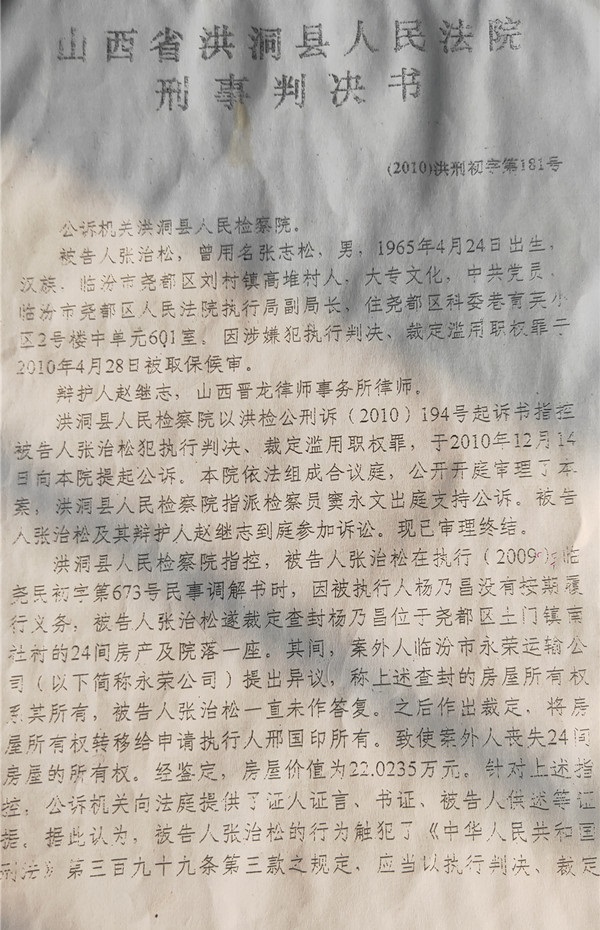 山西省洪洞县人民法院
刑事判决书
(2010)洪刑初字第181号
公诉机关洪洞县人民检察院。
被告人张治松，曾用名张志松，男，1965年4月24日出生，
汉族，临汾市尧都区刘村镇高堆村人，大专文化，中共党员，
临汾市尧都区人民法院执行局副局长，住尧都区科委巷育英小
区2号楼中单元601室。因涉嫌犯执行判决、裁定滥用职权罪于
2010年4月28日被取保候审。
辩护人赵继志，山西晋龙律师事务所律师。
洪洞县人民检察院以洪检公刑诉（2010）194号起诉书指控
被告人张治松犯执行判决、裁定滥用职权罪，于2010年12月14
日向本院提起公诉。本院依法组成合议庭，公开开庭审理了本
案，洪洞县人民检察院指派检察员窦永文出庭支持公诉。被告
人张治松及其辩护人赵继志到庭参加诉讼。现已审理终结。
洪洞县人民检察院指控，被告人张治松在执行（2009）临
尧民初字第673号民事调解书时，因被执行人杨乃昌没有按期履
行义务，被告人张治松遂裁定查封杨乃昌位于尧都区土门镇南
社村的24间房产及院落一座。其间，案外人临汾市永荣运输公
司（以下简称永荣公司）提出异议，称上述查封的房屋所有权
系其所有，被告人张治松一直未作答复。之后作出裁定，将房
屋所有权转移给申请执行人邢国印所有。致使案外人丧失24间
房屋的所有权。经鉴定，房屋价值为22.0235万元。针对上述指
控，公诉机关向法庭提供了证人证言、书证、被告人供述等证
据。据此认为，被告人张治松的行为触犯了《中华人民共和国
刑法》第三百九十九条第三款之规定，应当以执行判决、裁定